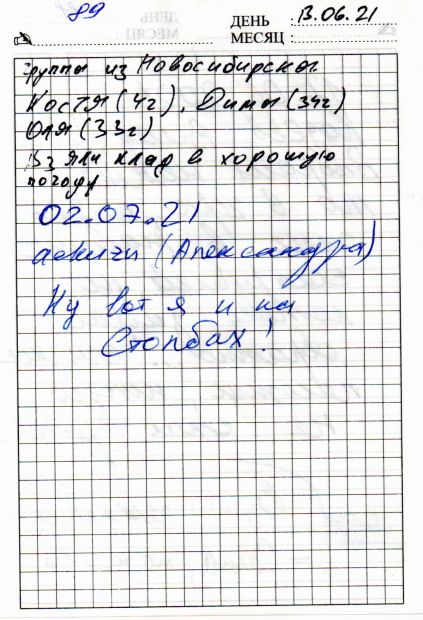 89
ДЕНЬ 13.06.21
МЕСЯЦ
Группа из Новосибирска
Костя (4г), Дима (34г)
Юля (33г)
Взяли клад в хорошую
погоду
02.07.21
(Александра)
Ну вот я и на
Столбах!